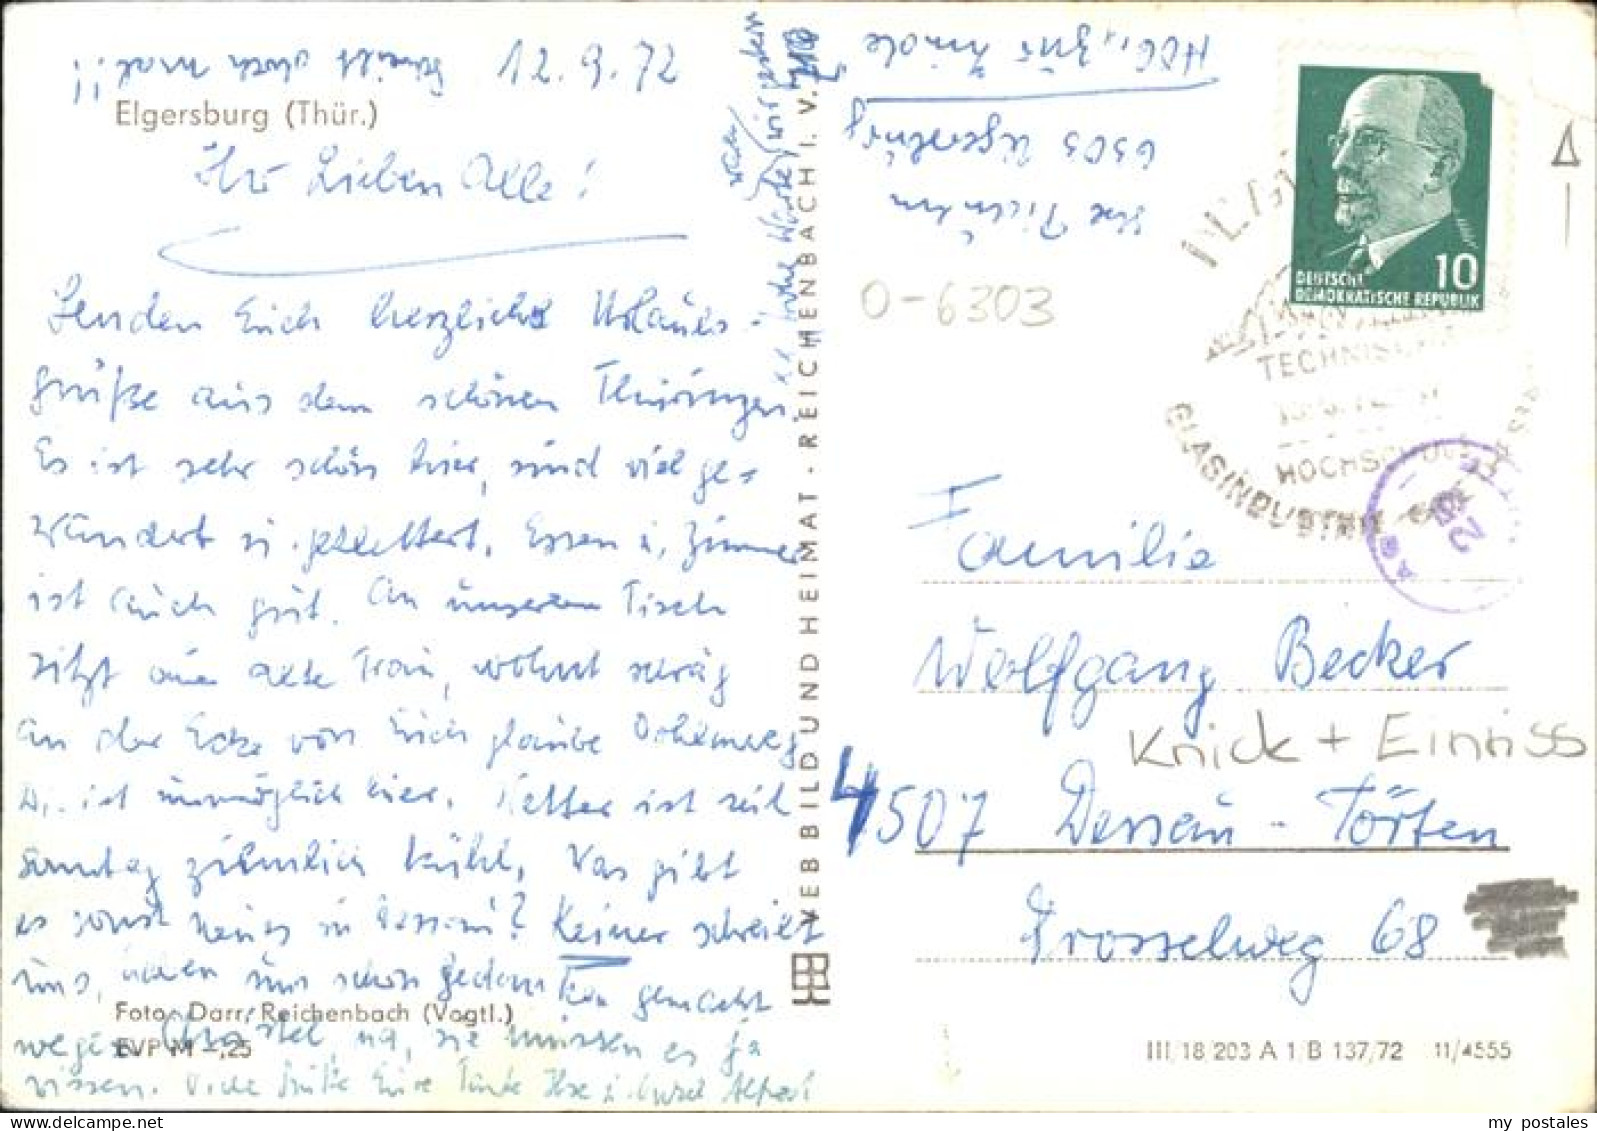 schreibt doch mal!!
12.9.72
Elgersburg (Thür.)
Ihr Lieben Alle!
Senden Euch herzliche Urlaubs-
grüße aus dem schönen Thüringen.
Es ist sehr schön hier, sind viel ge-
wandert u. geklettert. Essen u. Zimmer
ist auch gut. An unserem Tisch
sitzt eine alte Frau, wohnt schräg
an der Ecke von Euch glaube
ist unmöglich hier. Wetter ist seit
Sonntag ziemlich kühl. Was gibt
es sonst neues in Dessau? Keiner schreibt
uns, haben uns schon Gedanken gemacht
wegen na, sie müssen es ja
wissen. Viele Grüße Eure Tante Ilse u. Onkel Alfred
Foto: Darr, Reichenbach (Vogtl.)
EVP M -,25
VEB BILD UND HEIMAT · REICHENBACH I. V.
6303 Elgersburg
O-6303
DEUTSCHE
DEMOKRATISCHE REPUBLIK
10
TECHNISCHE
HOCHSCHULE
GLASINDUSTRIE
Familie
Wolfgang Becker
Knick + Einriss
4507 Dessau - Törten
Drosselweg 68
III/18/203 A 1 B 137/72 11/4555
my postales